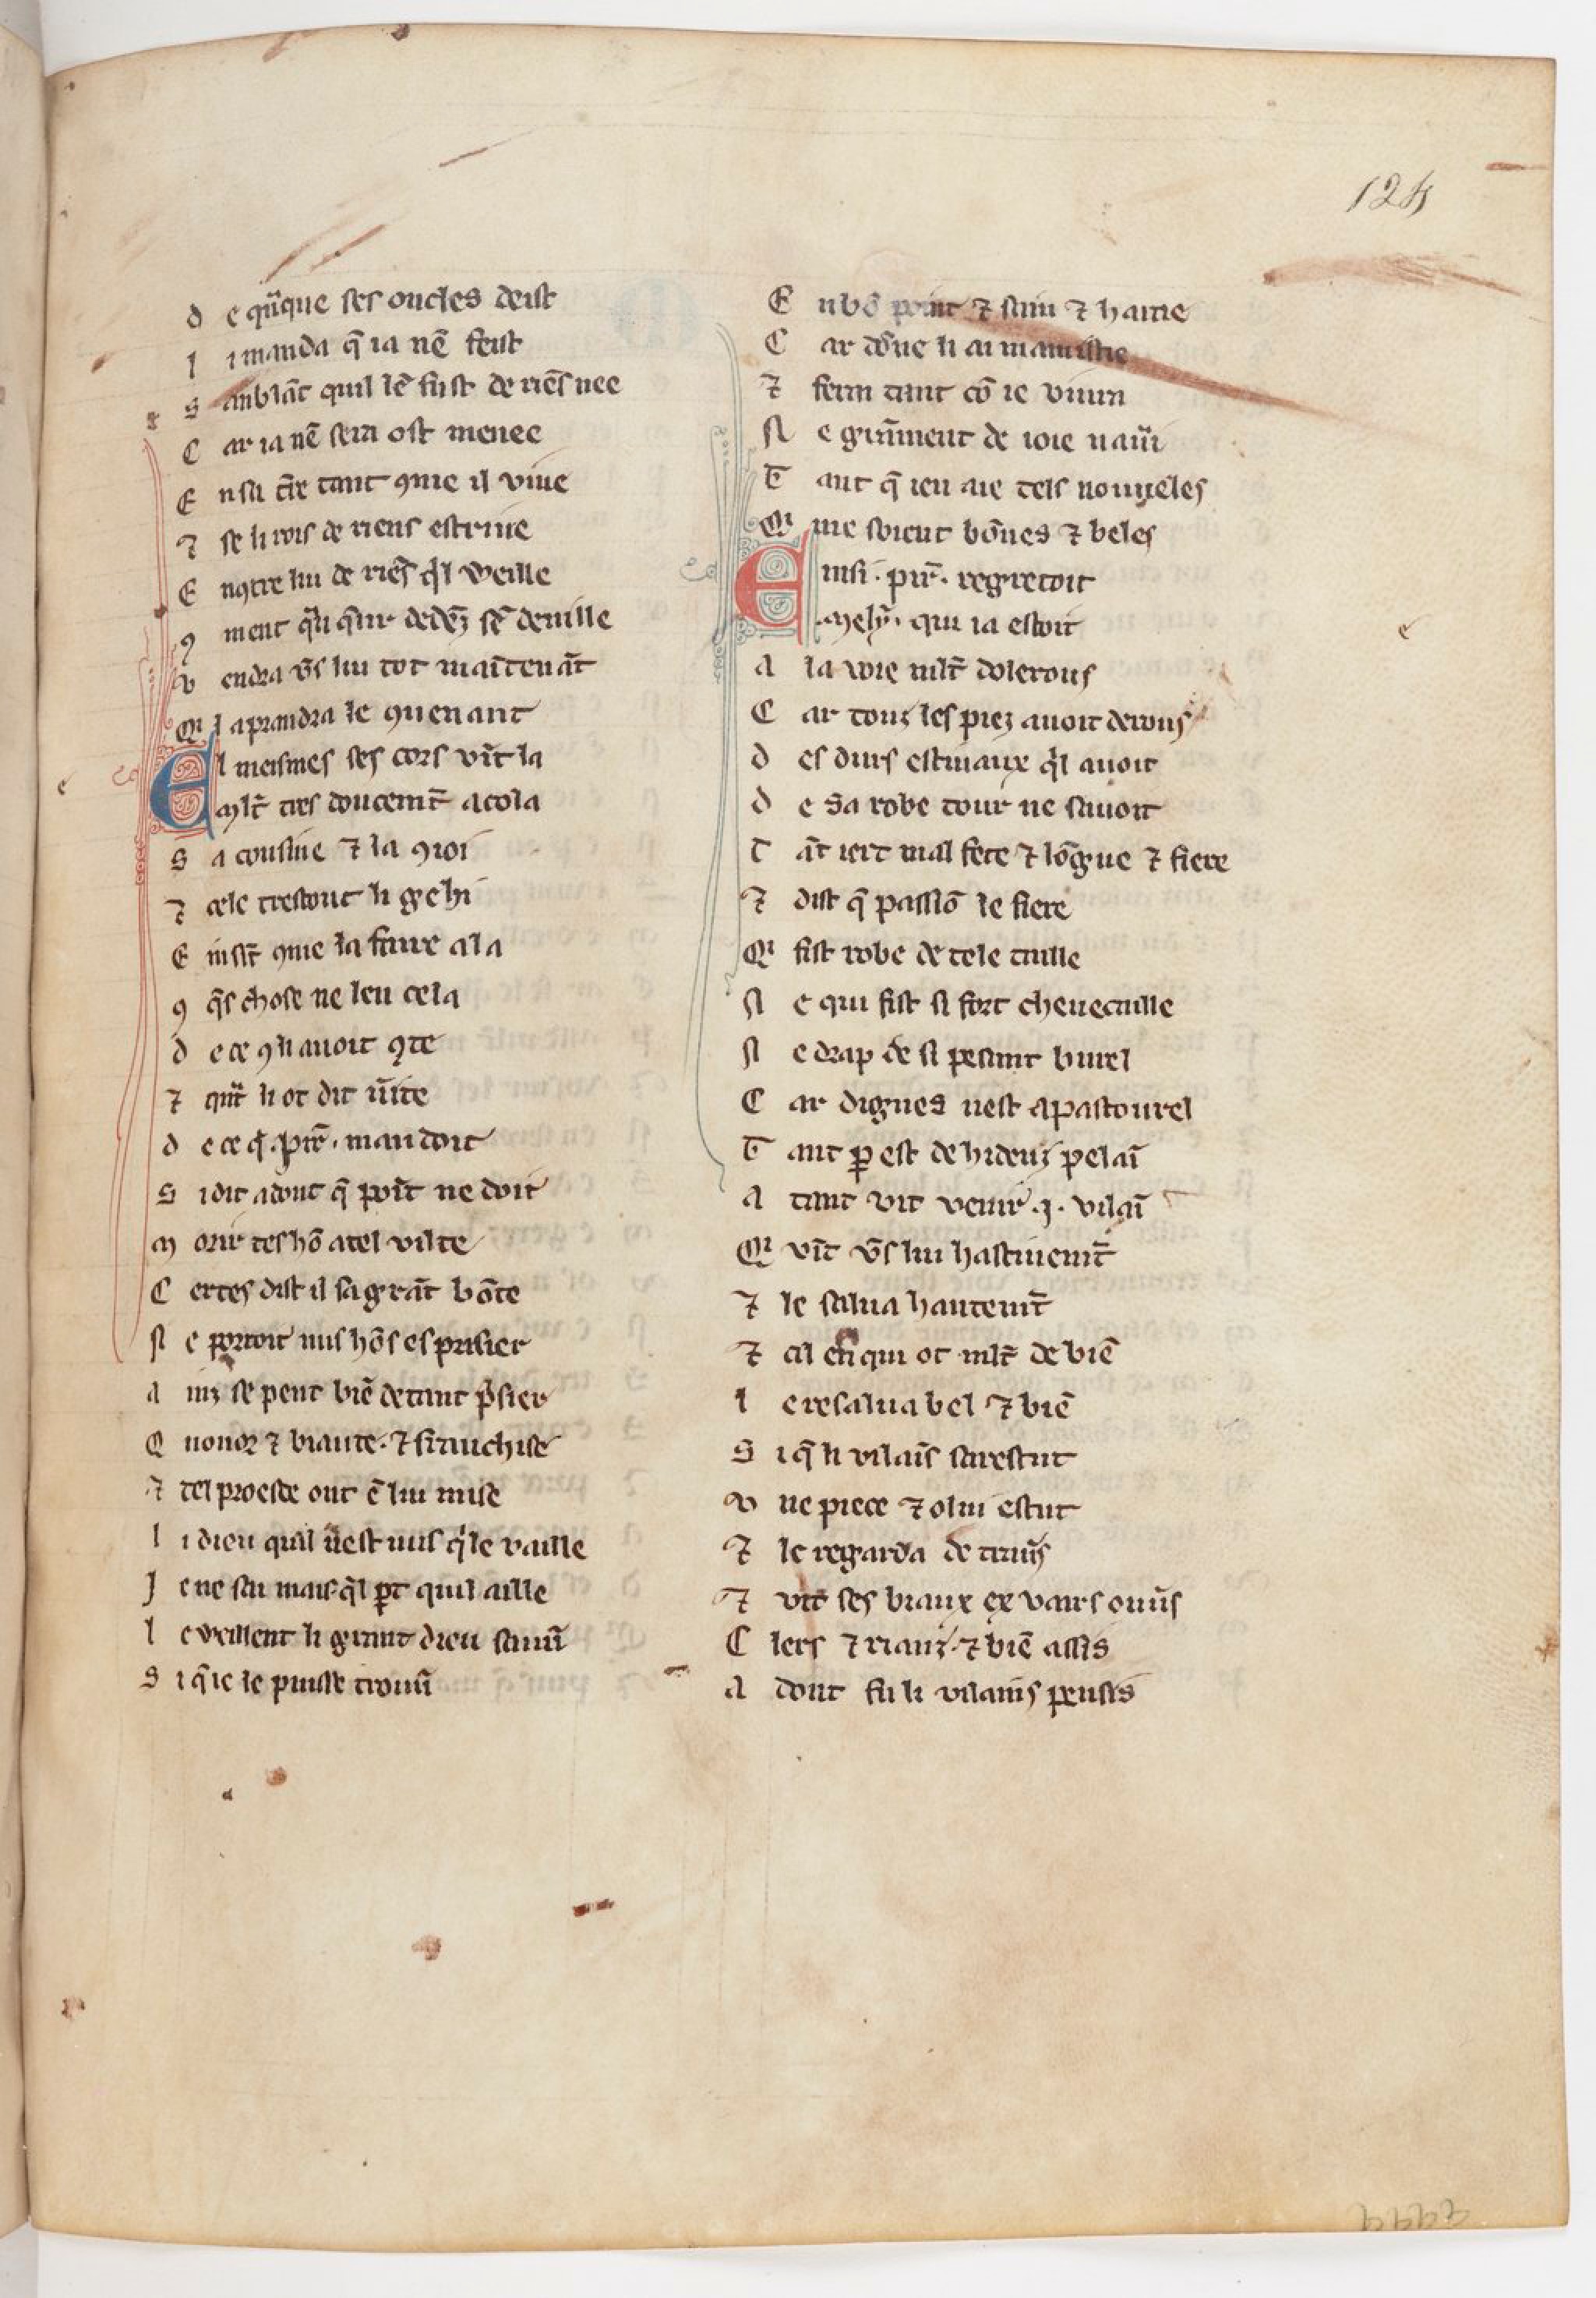 124
d e qͣnque ses oucles deist
l i manda q̃ ia nẽ feist
s anblãt quil lẽ fust de riẽs nee
C ar ia nẽ sera ost menee
E n sa t̃re tant ꝯme il viue
⁊ se li rois de riens estriue
E nꝯtre lui de riẽs q̉l weille
ꝯ ment
v endra v̄s lui tot maĩtenãt
Qi l aprandra le ꝯuenant
E l meismes ses cors vĩt la
mlt̃ tres doucemt̃ acola
s a cousine ⁊ la ꝯioi
⁊ cele trestout li gehi
E insit̃ ꝯme la faire ala
ꝯ q̃s chose ne leu cela
d e ce ꝯ li auoit ꝯte
⁊ qñt li ot dit ũite
d e ce q̃ .pir̃. mandoit
S i dit adont q̃ poĩt ne doit
m orir tes hõ a tel vilte
C ertes dist il sa grãt bõte
N e porroit nus hõs esprisier
a inz se peut biẽ de tant p̉sier
Q nonor ⁊ biaute. ⁊ franchise
⁊ tel proesce ont ẽ lui mise
l i dieu quil ñest nus q̉ le vaille
J e ne sai mais q̉l ꝑt quil aille
l e weillent li grant dieu sauũ
S i q̃ ie le puisse trouũ
E n bõ point ⁊ sain ⁊ haitie
C ar dõne li ai mamistie
⁊ ferai tant cõ ie viurai
N e grãment de ioie naũi
T ant q̃ ieu aie tels nouueles
Qi me soient bõnes ⁊ beles
E insi .pir̃. regretoit
.melỹ. qui ia estoit
A la voie mlt̃ dolerous
C ar touz les piez auoit derous
d es durs estiuaux q̉l auoit
d e sa robe tour ne sauoit
T ãt iert mal fete ⁊ lõgue ⁊ fiere
⁊ dist q̃ passiõ le fiere
Qi fist robe de tele taille
N e qui fist si fort cheuecaille
N e drap de si pesant burel
C ar dignes nest a pastourel
T ant ꝑ est de hideuz pelaĩ
A tant vit venir .j. vilaĩ
Qi vĩt v̄s lui hastiuemt̃
⁊ le salua hautemt̃
⁊ cil en qui ot mlt̃ de biẽ
l e resalua bel ⁊ biẽ
S i q̃ li vilaĩs sarestut
v ne piece ⁊ o lui estut
⁊ le regarda de trauũs
⁊ vit ses biaux ex vairs ouũs
C lers ⁊ rianz. ⁊ biẽ assis
A dont fu li vilains pensis